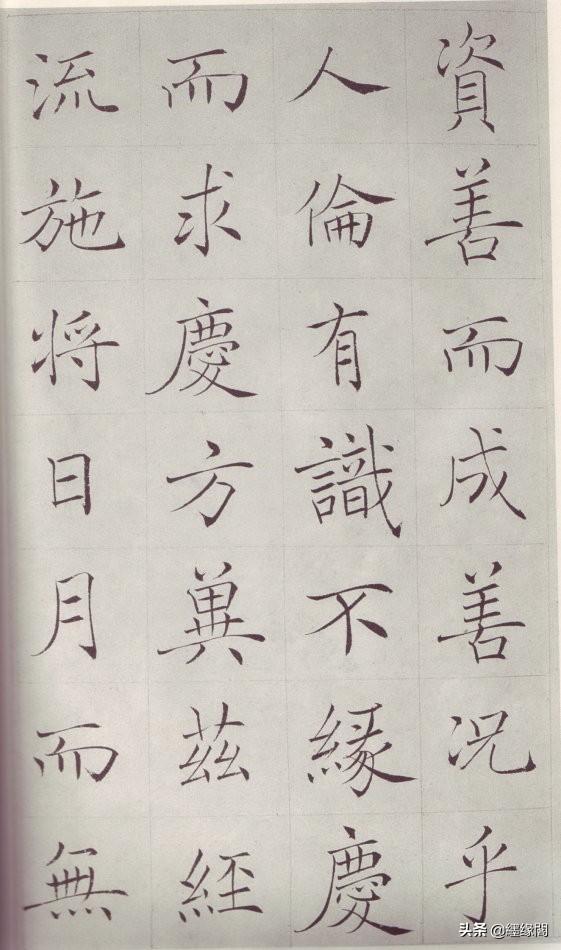 資善而成善况乎
人倫有識不縁慶
而求慶方兾茲經
流施将日月而無
头条 @經缘閣